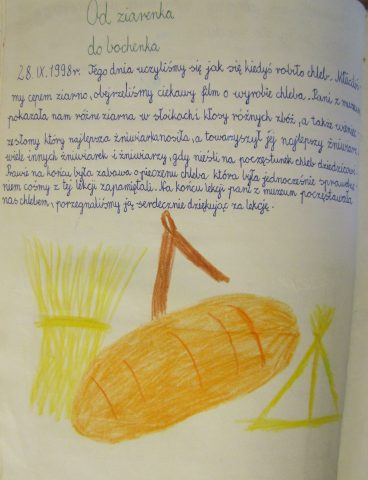 Od ziarenka
do bochenka
28.IX.1998r. Tego dnia uczyliśmy się jak się kiedyś robiło chleb. Młóciliś-
my cepem ziarno, obejrzeliśmy ciekawy film o wyrobie chleba. Pani z muzeum
pokazała nam różne ziarna w słoikach i kłosy różnych zbóż, a także wieniec
zesłomy który najlepsza żniwiarka nosiła, a towarzyszył jej najlepszy żniwiarz
wiele innych żniwiarek i żniwiarzy, gdy nieśli na poczęstunek chleb dziedzicowi.
Prawie na końcu była zabawa o pieczeniu chleba która była jednocześnie sprawdze-
niem co śmy z tej lekcji zapamiętali. Na końcu lekcji pani z muzeum poczęstowała
nas chlebem i pożegnaliśmy ją serdecznie dziękując za lekcję.